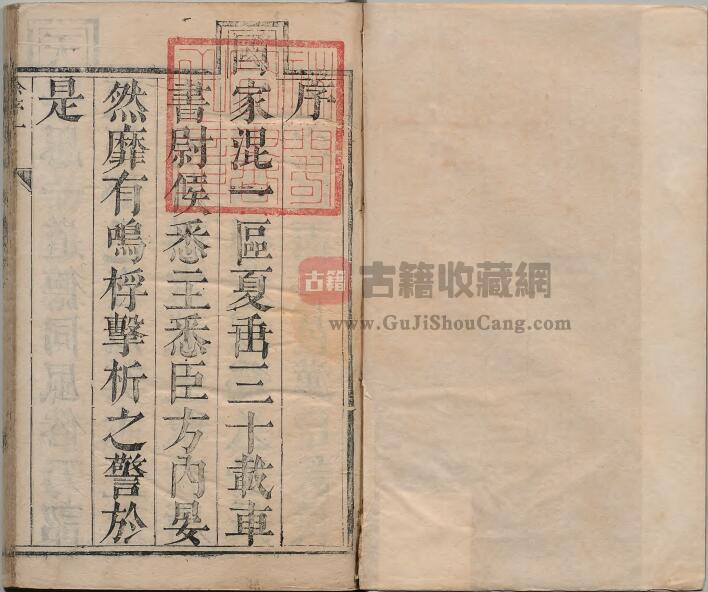 序
國家混一區夏垂三十載車
書尉侯悉主悉臣方內晏
然靡有鳴桴擊柝之警於
是
古籍
古籍收藏網
www.GuJiShouCang.com